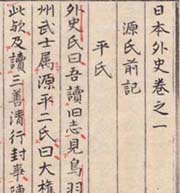 日本外史卷之一
源氏前記
平氏
外史氏曰吾讀旧志見鳥羽
州武士属源平二氏曰大權
此欤及讀三善清行封事陳